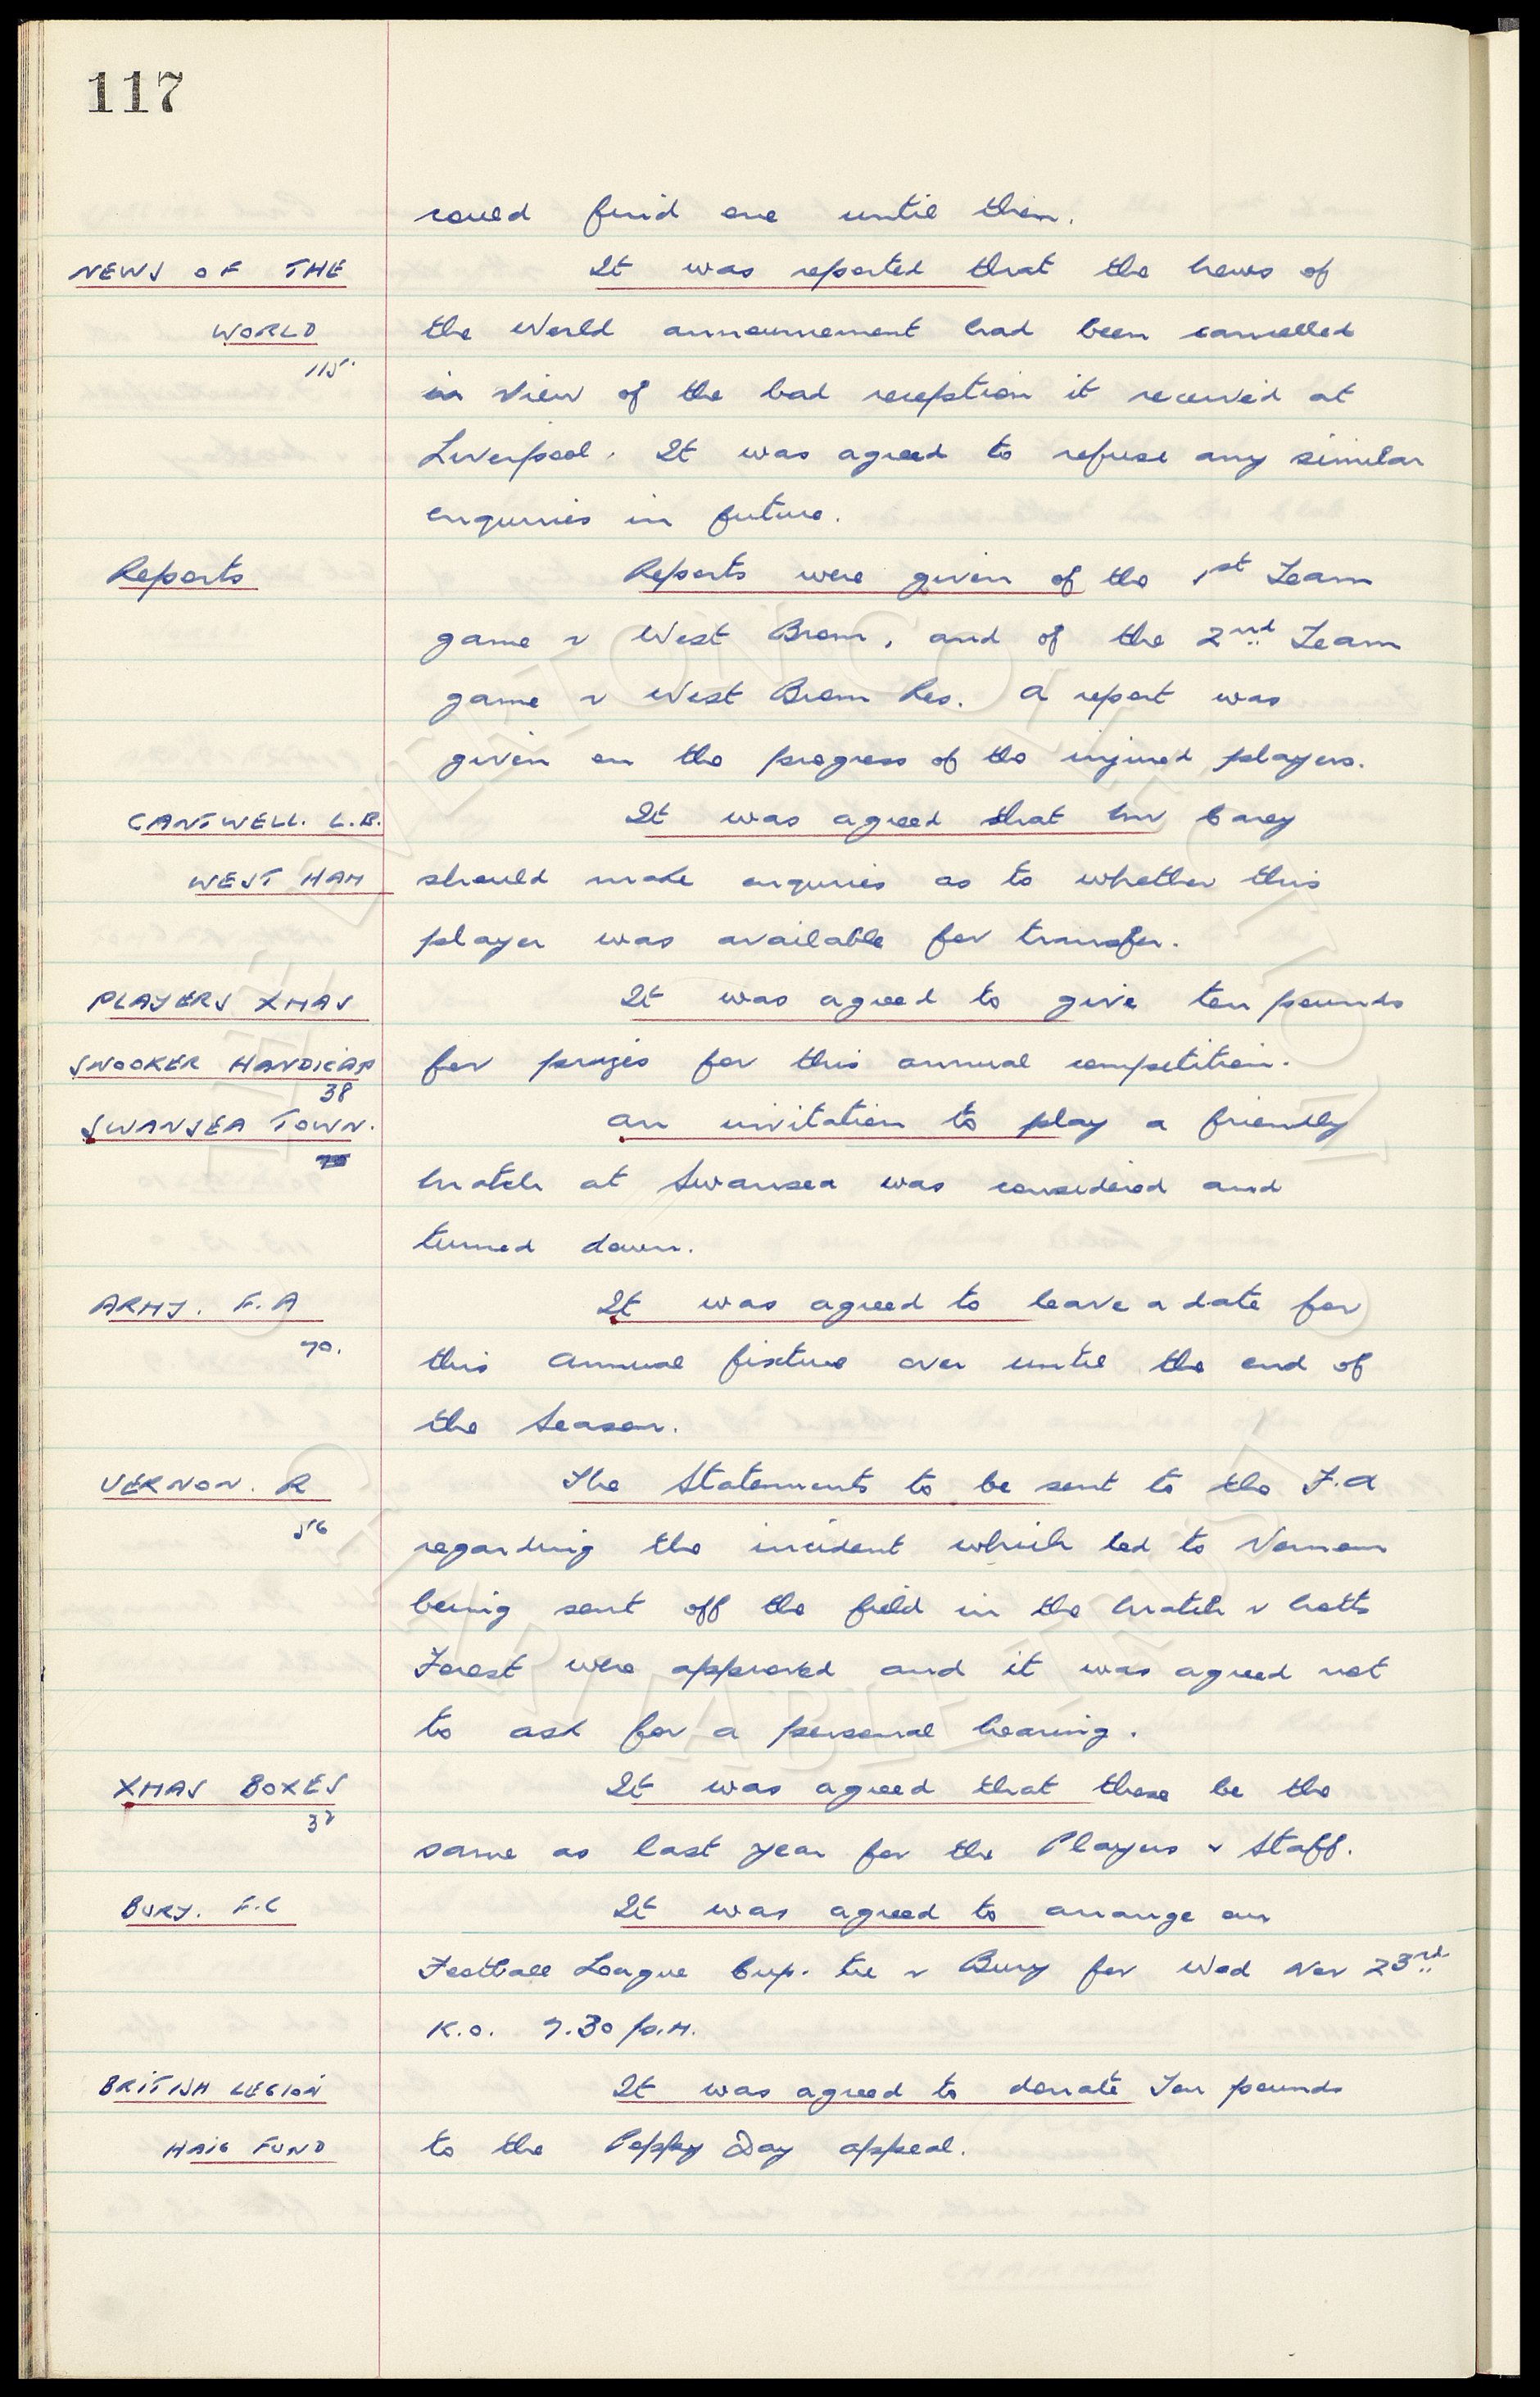 117
could find one until then.
NEWS OF THE It was reported that the News of
WORLD the World announcement had been cancelled
115.
in view of the bad reception it received at
Liverpool. It was agreed to refuse any similar
enquiries in future.
Reports Reports were given of the 1st Team
game v West Brom, and of the 2nd Team
game v West Brom Res. A report was
given on the progress of the injured players.
CANTWELL. L.B. It was agreed that Mr Carey
WEST HAM should make enquiries as to whether this
player was available for transfer.
PLAYERS XMAS It was agreed to give ten pounds
SNOOKER HANDICAP for prizes for this annual competition.
38
SWANSEA TOWN. An invitation to play a friendly
match at Swansea was considered and
turned down.
ARMY. F.A It was agreed to leave a date for
70. this annual fixture over until the end of
the Season.
VERNON. R The Statements to be sent to the F.A
56
regarding the incident which led to Vernon
being sent off the field in the match v Notts
Forest were approved and it was agreed not
to ask for a personal hearing.
XMAS BOXES It was agreed that these be the
32
same as last year for the Players & Staff.
BURY. F.C It was agreed to arrange our
Football League Cup. tie v Bury for Wed Nov 23rd
K.O. 7.30 p.m.
BRITISH LEGION It was agreed to donate Ten pounds
HAIG FUND to the Poppy Day appeal.